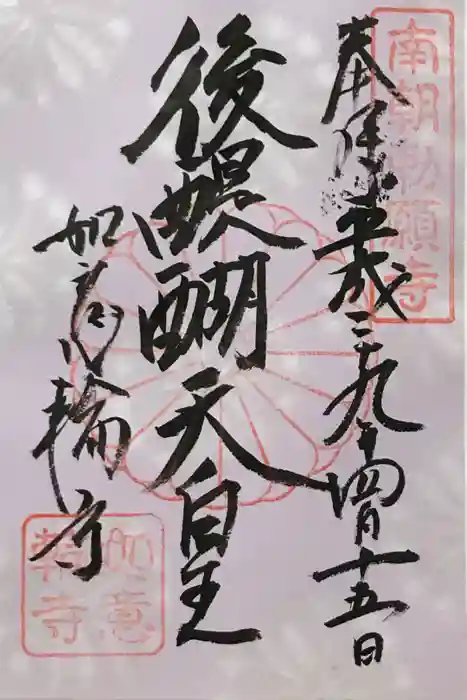 奉拝 平成二十九年四月十五日
南朝勅願寺
後醍醐天皇
如意輪寺
如意輪寺